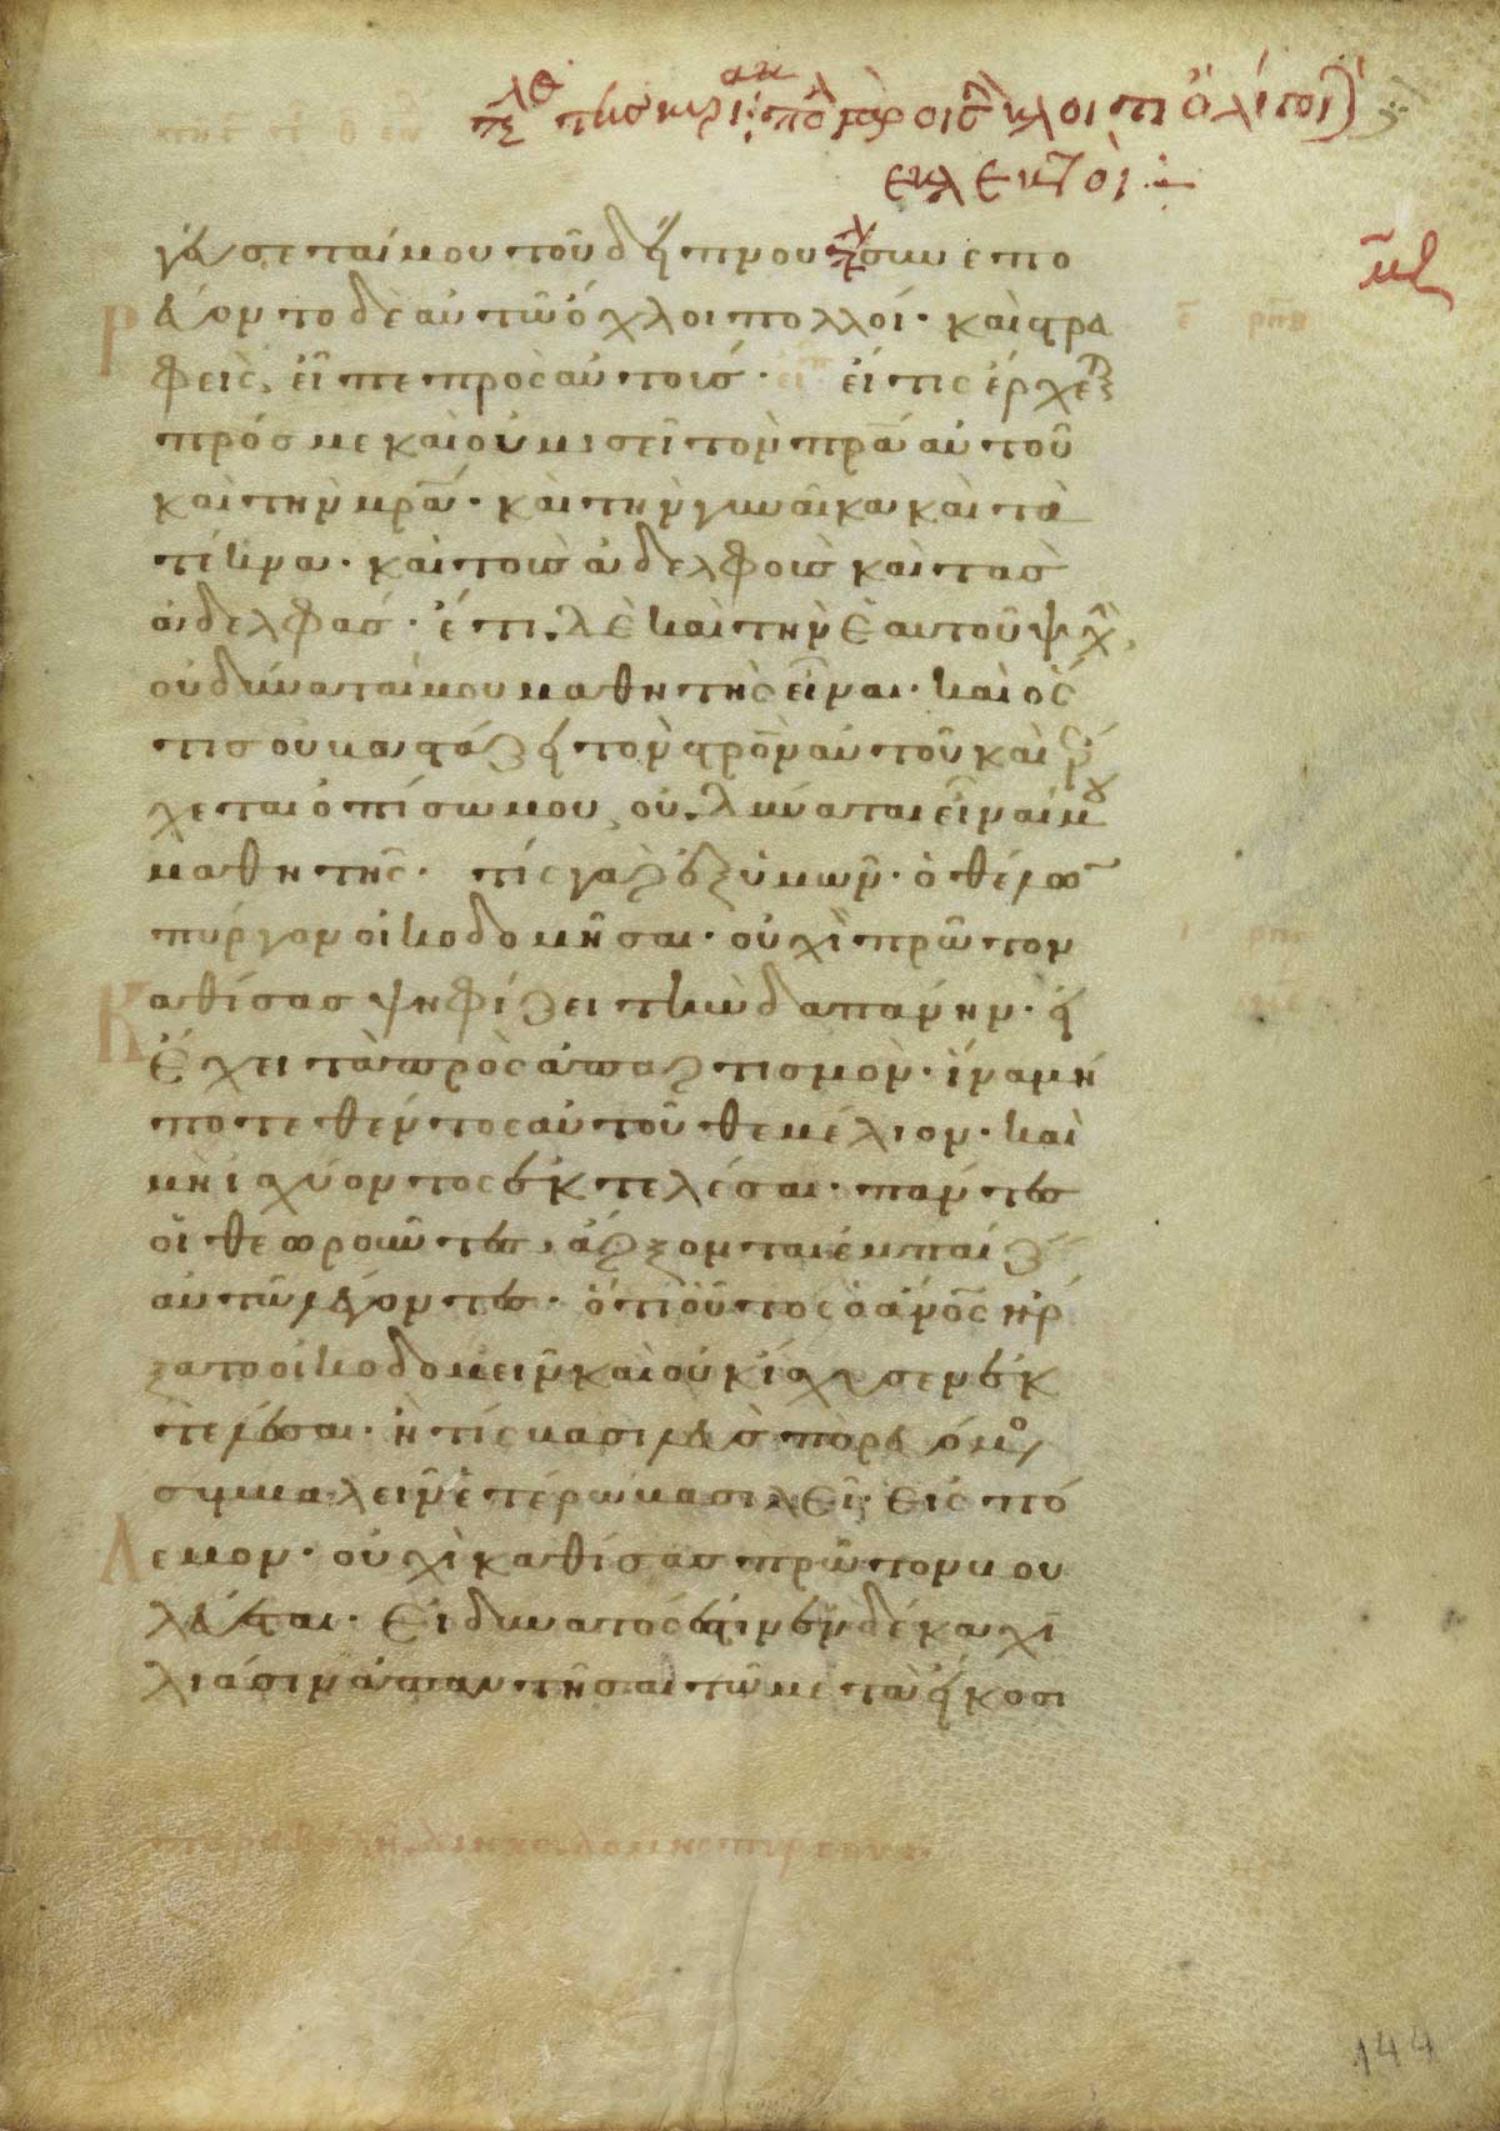 ἐκλεκτοὶ
γεύσεταί μου τοῦ δείπνου συνεπο
ρεύοντο δὲ αὐτῶ ὄχλοι πολλοί· καὶ στρα
φεὶς, εἶπε πρὸς αὐτούσ· εἴ τις ἔρχεται
πρόσ με καὶ οὐ μισεῖ τὸν πρ̅α αὐτοῦ
καὶ τὴν μρ̅α· καὶ τὴν γυναῖκα καὶ τὰ
τέκνα· καὶ τοὺσ ἀδελφοὺσ καὶ τὰσ
ἀδελφάσ· ἔτι δὲ καὶ τὴν ἑαυτοῦ ψυχὴν,
οὐ δύναταί μου μαθητὴς εἶναι· καὶ ὅς
τισ οὐ βαστάζει τὸν στρο̅ν αὐτοῦ καὶ ἔρ
χεται ὀπίσω μου, οὐ δύναται εἶναί μου
μαθητής· τίς γὰρ ἐξ ὑμῶν· ὁ θέλων
πύργον οἰκοδομῆσαι· οὐχὶ πρῶτον
καθίσασ ψηφίζει τὴν δαπάνην· εἰ
ἔχει τὰ πρὸς ἀπαρτισμόν· ἵνα μή
ποτε θέντος αὐτοῦ θεμέλιον· καὶ
μὴ ἰσχύοντος ἐκτελέσαι· πάντεσ
οἱ θεωροῦντεσ, ἄρξονται ἐμπαίζειν
αὐτῶ λέγοντεσ· ὅτι οὗτος ὁ ἄν̅ος ἤρ
ξατο οἰκοδομεῖν καὶ οὐκ ἴσχυσεν ἐκ
τελέσαι· ἢ τίς βασιλεὺσ πορευόμενος
συμβαλεῖν ἑτέρω βασιλεῖ· εἰς πό
λεμον· οὐχὶ καθίσασ πρῶτον βου
λεύεται· εἰ δυνατός ἐστιν ἐν δέκα χι
λιάσιν ἀπαντῆσαι τῶ μετὰ εἴκοσι
144